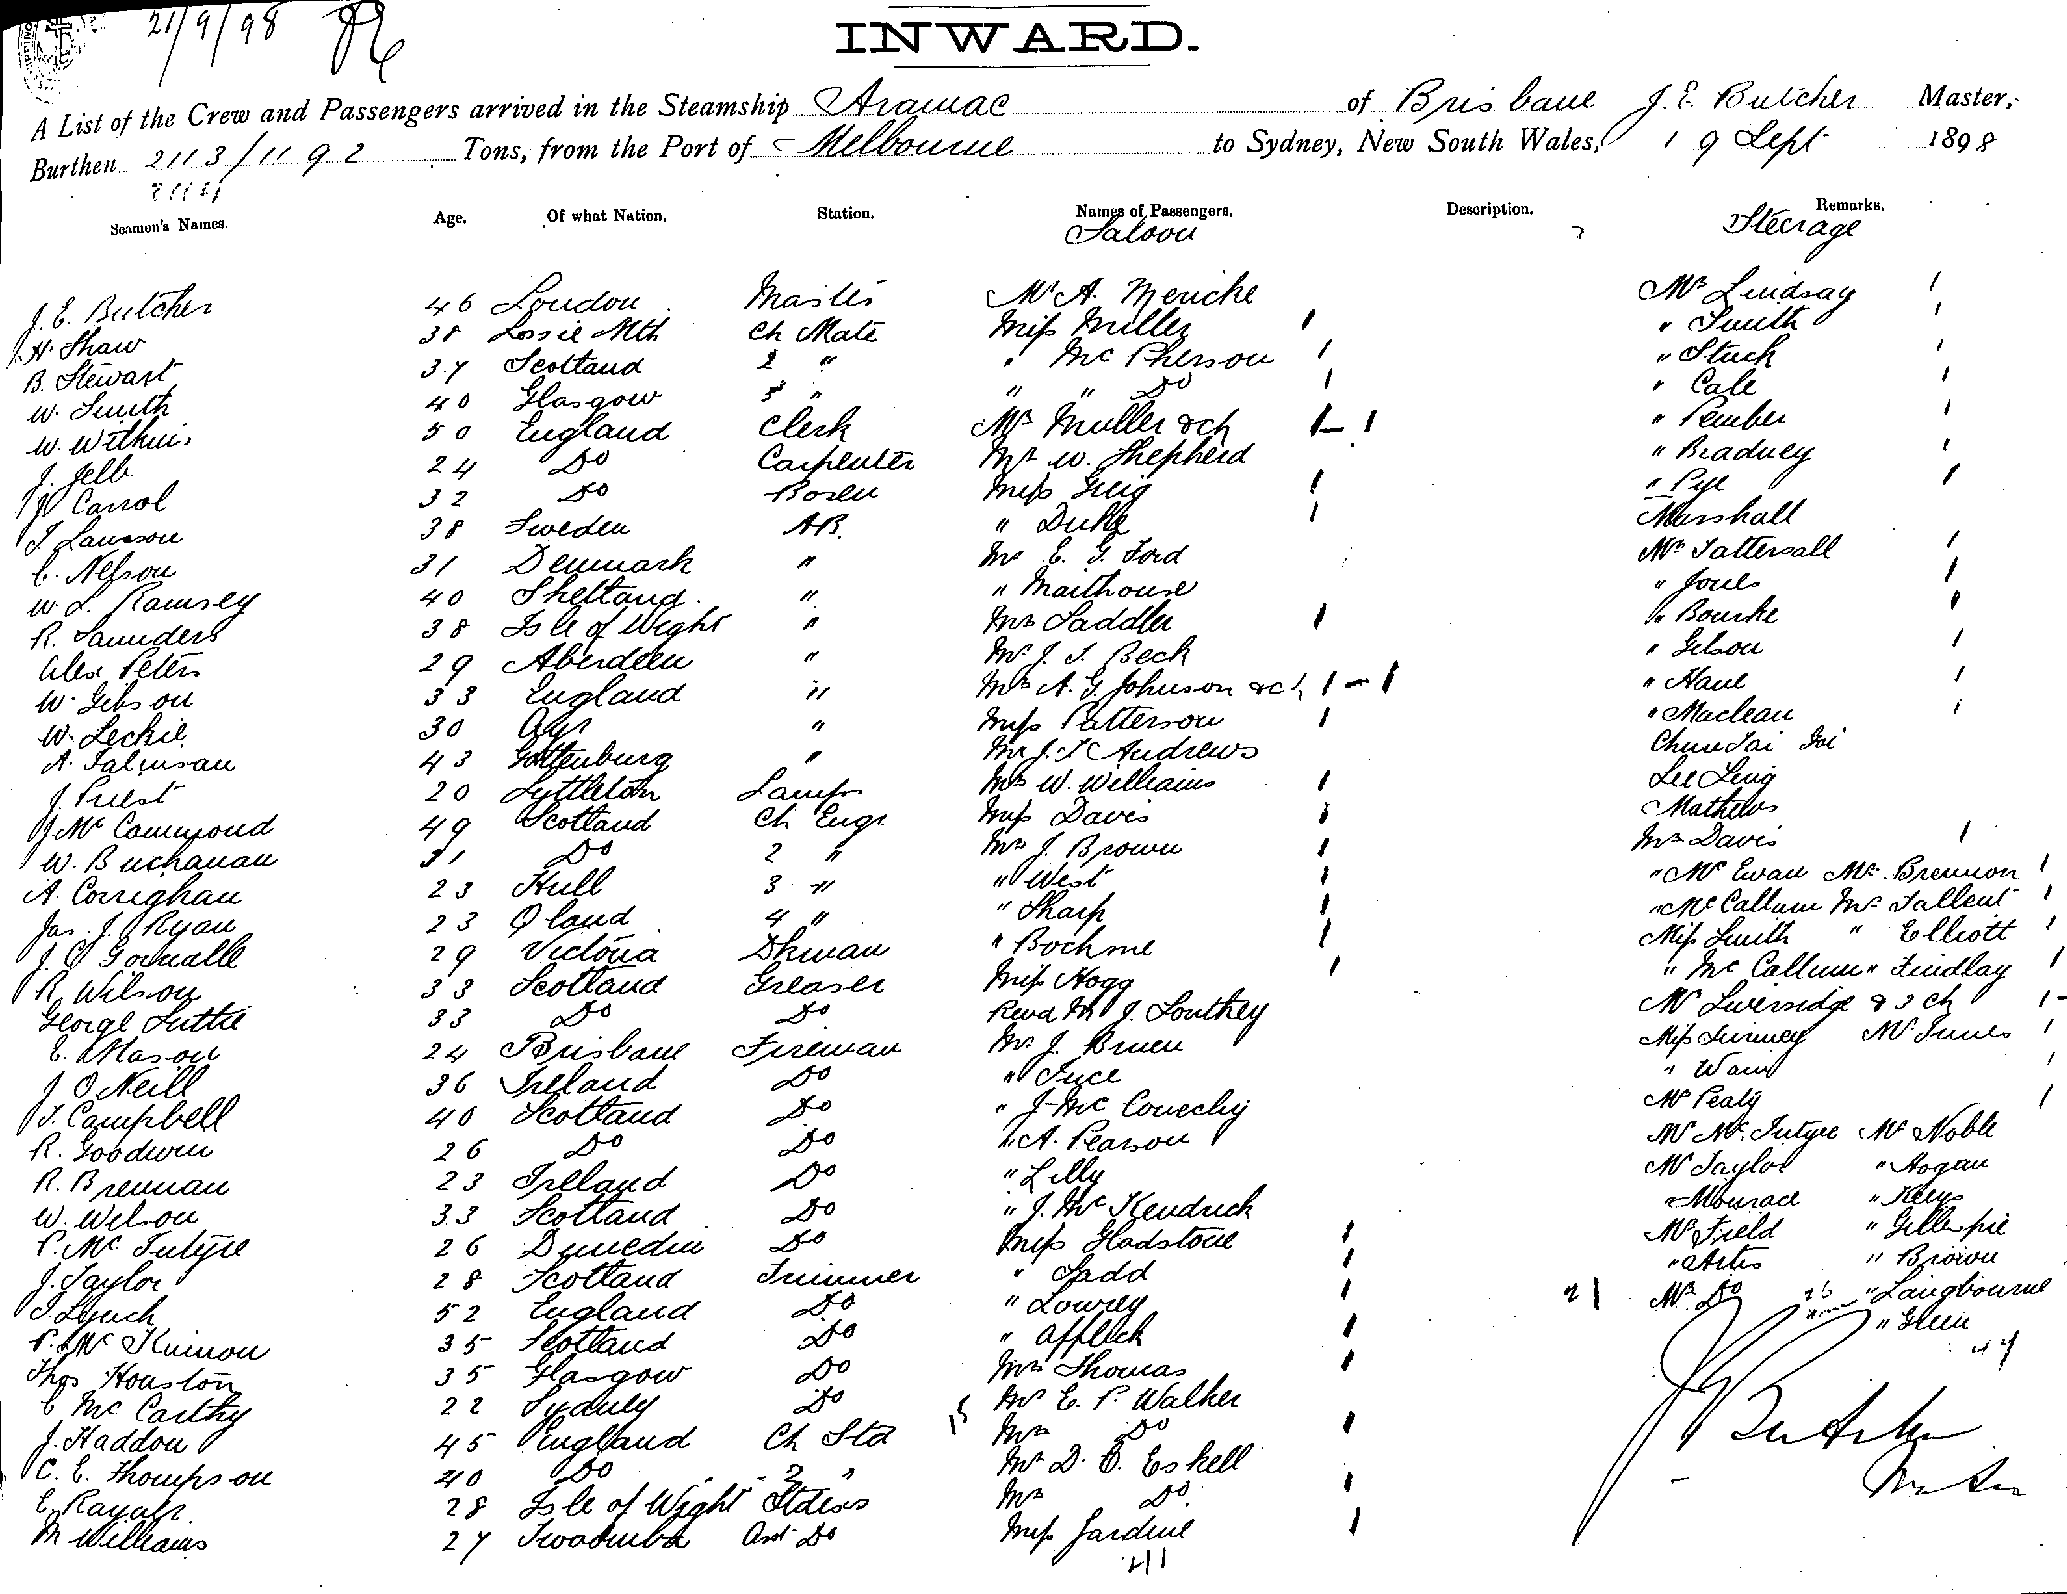 21/9/98
INWARD.
A List of the Crew and Passengers arrived in the Steamship Aramac of Brisbane J. E. Butcher Master,
Burthen 2113/1192 Tons, from the Port of Melbourne to Sydney, New South Wales, 19 Sept 1898
Seamen's Names. Age. Of what Nation. Station. Names of Passengers. Description. Remarks.
Saloon Steerage
J. E. Butcher 46 London Master Mr A. Menicke Mrs Lindsay 1
H. Shaw 38 Lossie Mth Ch Mate Miss Miller 1 " Smith 1
B. Stewart 37 Scotland 2 " " Mc Pherson 1 " Stuck 1
W. Smith 40 Glasgow 3 " " " Do 1 " Cale 1
W. 50 England Clerk Mrs Muller & ch 1-1 " Pember 1
J. Jelb 24 Do Carpenter Mr W. Shepherd " Bradney 1
J. Carrol 32 Do Bosen Miss Greig 1 " Pye 1
38 Sweden AB. " Duke 1 Marshall
C. Nelson 31 Denmark " Mr E. G. Ford Mrs Tattersall 1
W. L. Ramsey 40 Shetland " " Maithouse " Jones 1
R. Saunders 38 Isle of Wight " Mrs Saddler 1 " Bourke 1
Alex Peters 29 Aberdeen " Mr J. T. Beck " Gibson 1
W. Gibson 33 England " Mrs A. G. Johnson & ch 1-1 " Hane 1
W. Leckie 30 Ayr " Miss Patterson 1 " Maclean 1
A. 43 Gottenburg " Mr J. T. Andrews
J. Priest 20 Lyttleton Lamps Mrs W. Williams 1 Lee Ling
J. Mc Cammond 49 Scotland Ch Engr Miss Davis 1 Mathews
W. Buchanan 31 Do 2 " Mrs J. Brown 1 Mrs Davis 1
A. Corrighan 23 Hull 3 " " West 1 " Mc Ewan Mrs. Brennon 1
Jas. J. Ryan 23 Q land 4 " " Sharp 1 " Mc Callum Mrs Tallent 1
J. C. 29 Victoria Dkman " Bochme 1 Miss Smith " Elliott 1
R. Wilson 33 Scotland Greaser Miss Hogg 1 " Mc Callum " Findlay 1
George Suttie 33 Do Do Revd Mr J. Southey Mr Liversidge & 3 ch 1-
E. Mason 24 Brisbane Fireman Mr J. Bruen Miss Mrs Innes 1
J. O'Neill 36 Ireland Do " Tuce " 1
T. Campbell 40 Scotland Do " J. Mc Conechy Mrs Pealy 1
R. Goodwin 26 Do Do " A. Pearson Mr Mc. Intyre Mr Noble
R. Brennan 23 Ireland Do " Lilly Mr Taylor " Hogan
W. Wilson 33 Scotland Do " J. Mc Kendrick " Keys
P. Mc Intyre 26 Dunedin Do Miss Gladstone 1 Mr Field " Gillespie
J. Taylor 28 Scotland Trimmer " Ladd 1 " Artis " Brown
T. Lynch 52 England Do " Lowrey 1 21 Mr. Do " Langbourne
P. Mc Kinnon 35 Scotland Do " Affleck 1 " Green
Thos Houston 35 Glasgow Do Mrs Thomas 1 44
C Mc Carthy 22 Sydney Do Mr E. P. Walker
J. Haddon 45 England Ch Std Mrs Do 1 J E Butcher
C. E. Thompson 40 Do 2 " Mr D. C. Eskell Master
E. 28 Isle of Wight Stdess Mrs Do. 1
M Williams 27 Asst Do Miss Jardine 1
41